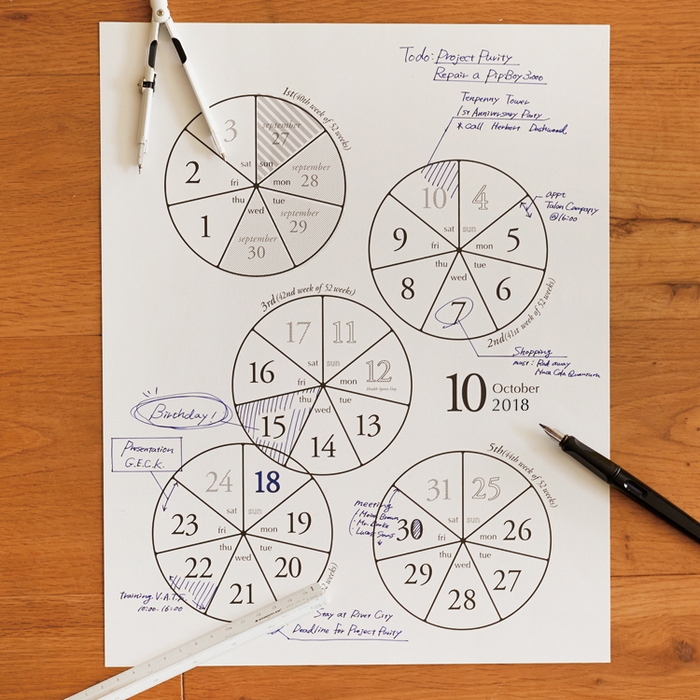 Todo: Project Purity
Repair a PipBoy 3000
Tenpenny Tower
1st Anniversary Party
* call Herbert Dashwood
1st (40th week of 52 weeks)
3
september
27
sat
sun
2
fri
mon
september
28
thu
tue
wed
1
september
29
september
30
10
4
appt
Talon Company
@16:00
9
sat
sun
5
fri
mon
thu
tue
wed
8
6
7
2nd (41st week of 52 weeks)
Shopping
must: Rad away
Nuka Cola Quantum
3rd (42nd week of 52 weeks)
17
11
16
sat
sun
12
fri
mon
thu
tue
wed
15
13
14
10
October
2018
Birthday!
Presentation
G.E.C.K.
24
18
23
sat
sun
19
fri
mon
thu
tue
wed
22
20
21
weeks)
Training V.A.T.S.
10:00-16:00
Stay at River City
Deadline for Project Purity
5th (44th week of 52 weeks)
31
25
meeting
30
sat
sun
26
fri
mon
thu
tue
wed
29
27
28